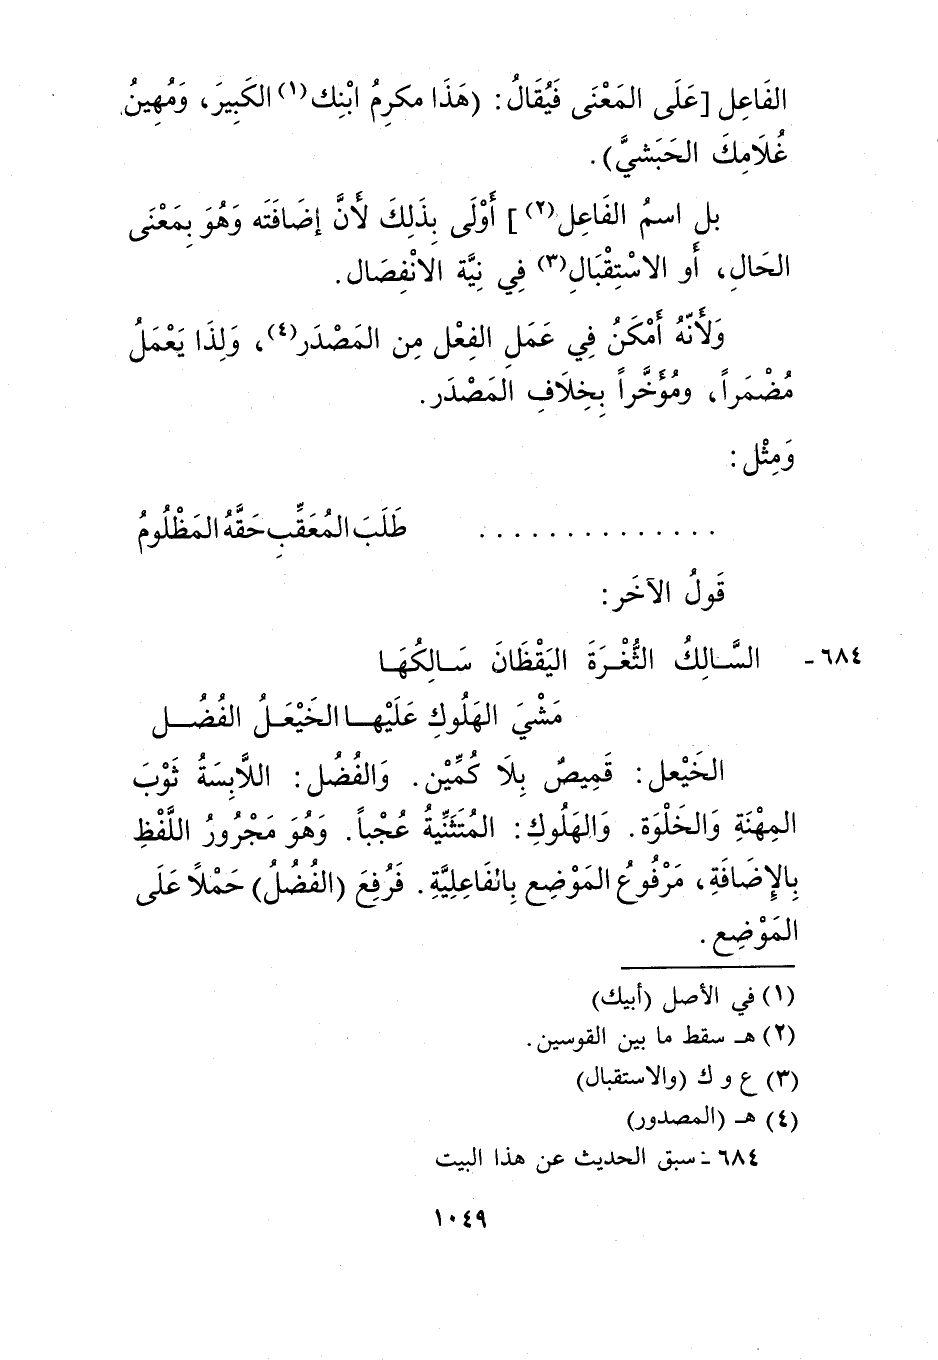 الفَاعِل [عَلَى المَعْنَى فَيُقَالُ: (هَذَا مكرِمُ ابْنِك(١) الكَبِيرَ، وَمُهِينُ
غُلَامِكَ الحَبَشيَّ).
بل اسمُ الفَاعِل(٢)] أَوْلَى بِذَلِكَ لأَنَّ إضَافَتَه وَهُوَ بِمَعْنَى
الحَالِ، أَو الاسْتِقْبَالِ(٣) فِي نِيَّة الانْفِصَال.
وَلأَنّهُ أَمْكَنُ فِي عَمَلِ الفِعْل مِن المَصْدَر(٤)، وَلِذَا يَعْمَلُ
مُضْمَراً، ومُؤَخَّراً بِخِلَافِ المَصْدَر.
وَمِثْل:
. . . . . . . . . . . . . . طَلَبَ المُعَقِّبِ حَقَّهُ المَظْلُومُ
قَولُ الآخَر:
٦٨٤- السَّالِكُ الثُّغْرَةَ اليَقْظَانَ سَالِكُهَا
مَشْيَ الهَلُوكِ عَلَيْها الخَيْعَلُ الفُضُل
الخَيْعل: قَمِيصٌ بِلَا كُمَّيْن. وَالفُضُل: اللَّابِسَةُ ثَوْبَ
المِهْنَةِ وَالخَلْوَة. وَالهَلُوكِ: المُتَثَنِّيةُ عُجْباً. وَهُوَ مَجْرُورُ اللَّفْظِ
بِالإِضَافَةِ، مَرْفُوعُ المَوْضِع بِالفَاعِلِيَّةِ. فَرُفِعَ (الفُضُلُ) حَمْلاً عَلَى
المَوْضِع.
(١) في الأصل (أبيك)
(٢) هـ سقط ما بين القوسين.
(٣) ع و ك (والاستقبال)
(٤) هـ (المصدور)
٦٨٤ ـ سبق الحديث عن هذا البيت
١٠٤٩